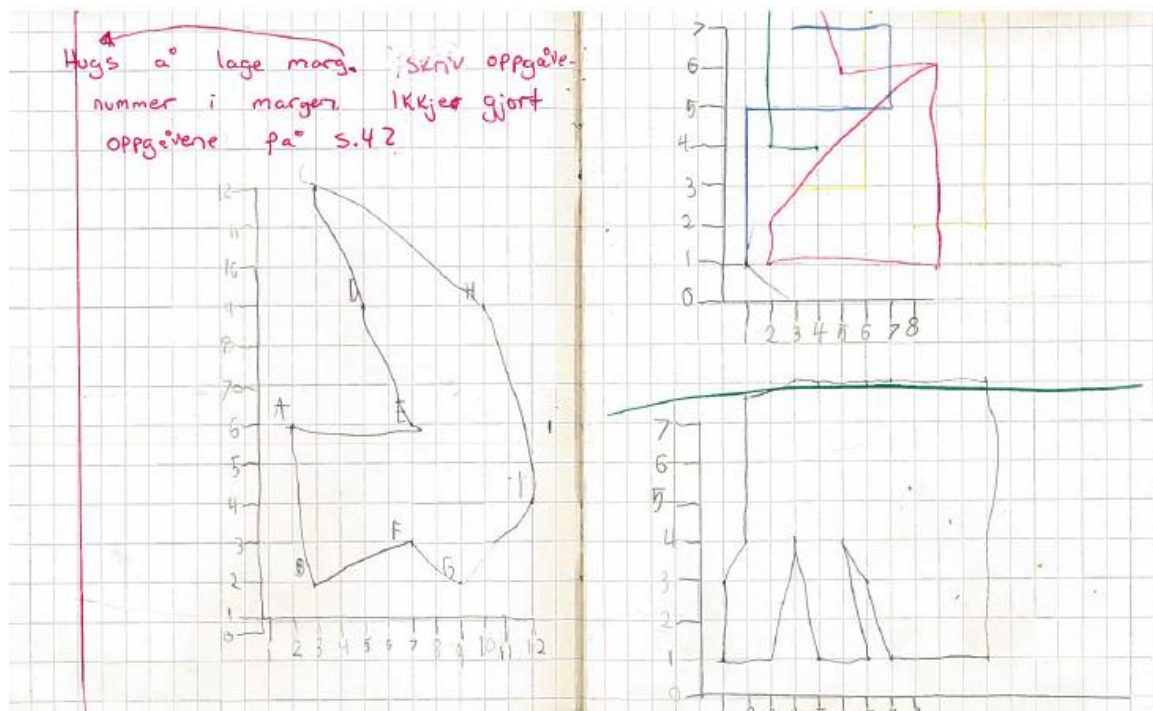 Hugs å lage marg. Skriv oppgåve-
nummer i margen. Ikkje gjort
oppgåvene på s.42
12
11
10
9
8
7
6
5
4
3
2
1
0
C
D
H
A
E
I
F
B
G
2 3 4 5 6 7 8 9 10 11 12
7
6
5
4
3
2
1
0
1 2 3 4 5 6 7 8
7
6
5
4
3
2
1
0